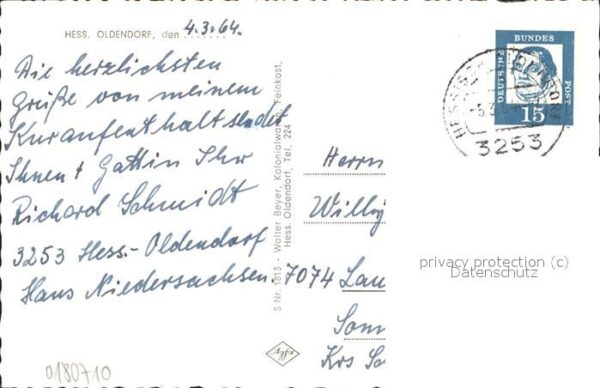 HESS. OLDENDORF, den 4.3.64.
Die herzlichsten
Grüße von meinem
Kuraufenthalt sendet
Ihnen + Gattin Ihr
Richard Schmidt
3253 Hess.-Oldendorf
Haus Niedersachsen.
S Nr. 1813 - Walter Beyer, Kolonialwaren, Feinkost,
Hess. Oldendorf, Tel. 224
DEUTSCHE
BUNDES
POST
15
3253
Herrn
Willy
7074 Lau
Som
Krs Sc
privacy protection (c)
Datenschutz
0180710